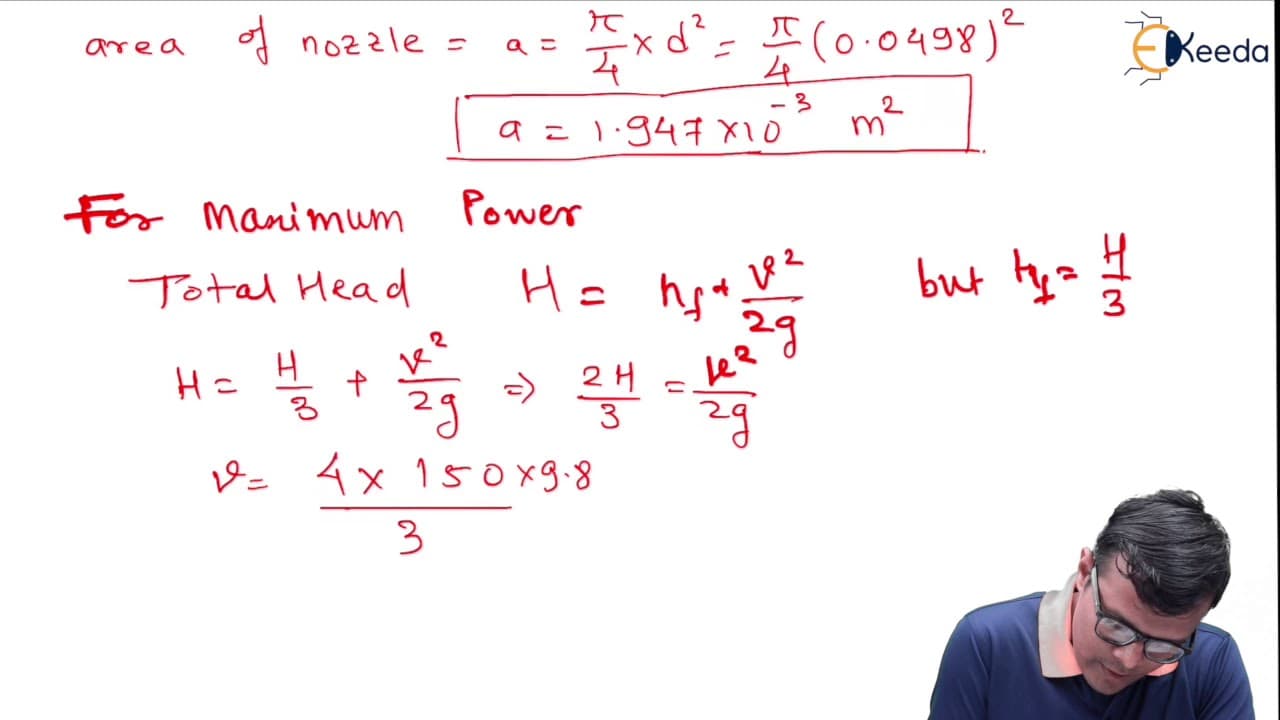 area of nozzle = a = π/4 × d² = π/4 (0.0498)²
EKeeda
a = 1.947 ×10⁻³ m²
For Maximum Power
Total Head H = hf + v²/2g but hf = H/3
H = H/3 + v²/2g ⇒ 2H/3 = v²/2g
v = 4 × 150 × 9.8 / 3